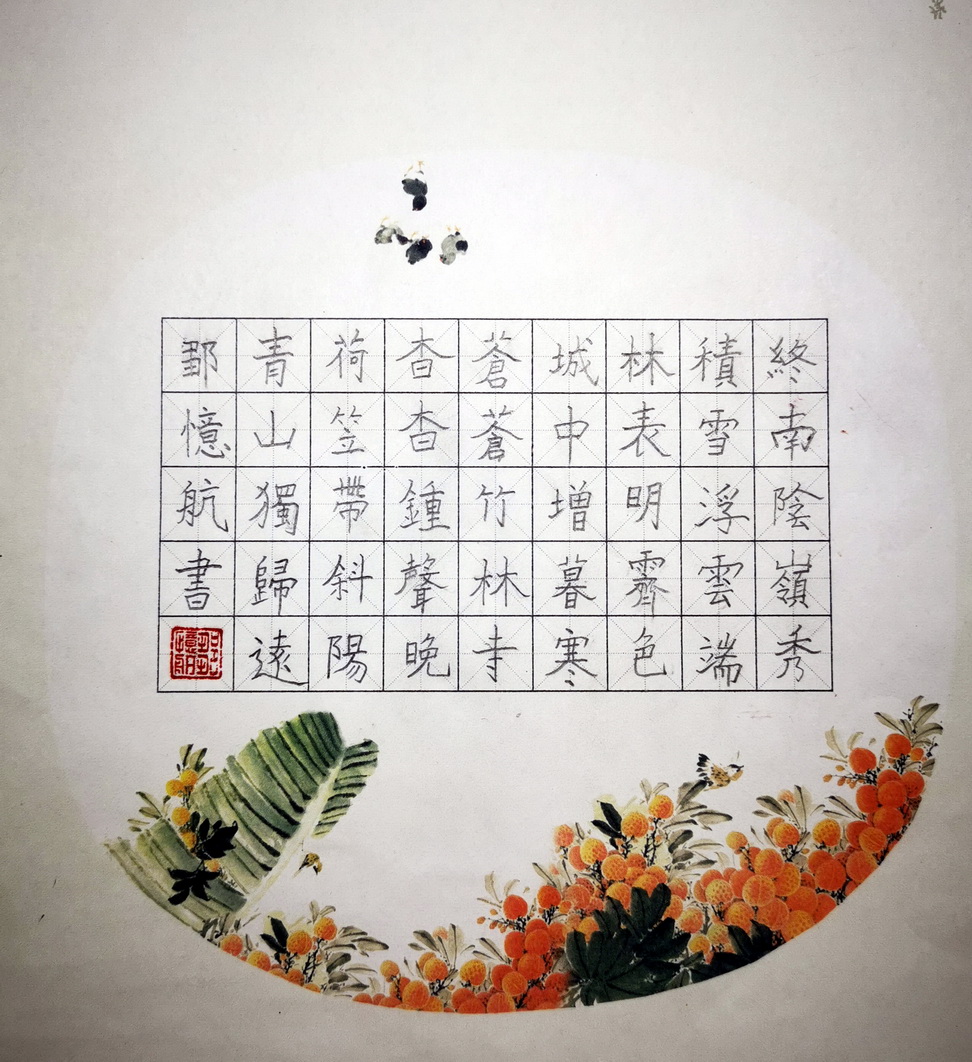 終南陰嶺秀
積雪浮雲端
林表明霽色
城中增暮寒
蒼蒼竹林寺
杳杳鍾聲晚
荷笠帶斜陽
青山獨歸遠
憶航書